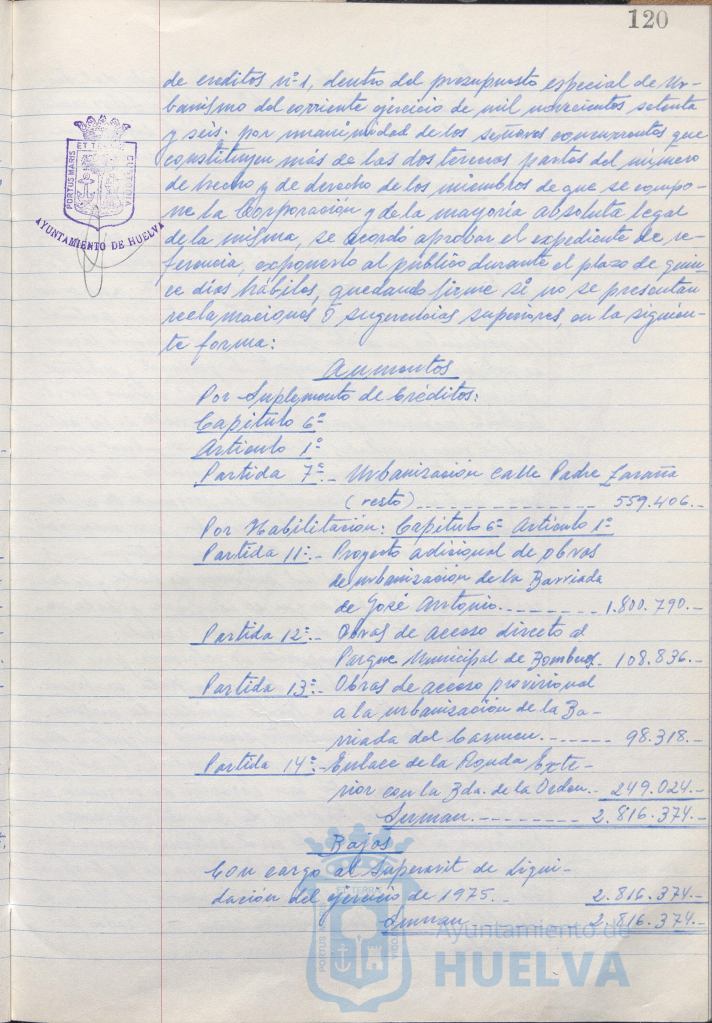 120
de creditos nº 1, dentro del presupuesto especial de Ur-
banismo del corriente ejercicio de mil novecientos setenta
y seis. por unanimidad de los señores concurrentes que
constituyen más de las dos terceras partes del número
de hecho y de derecho de los miembros de que se compo-
ne la Corporación y de la mayoría absoluta legal
de la misma, se acordó aprobar el expediente de re-
ferencia, exponerlo al público durante el plazo de quin-
ce días hábiles, quedando firme si no se presentan
reclamaciones ó sugerencias superiores, en la siguien-
te forma:
PORTUS MARIS ET TERRAE CUSTODIA
AYUNTAMIENTO DE HUELVA
Aumentos
Por Suplemento de Créditos:
Capítulo 6º
Artículo 1º
Partida 7ª.- Urbanización calle Padre
(resto) 559.406.-
Por Habilitación: Capítulo 6º Artículo 1º
Partida 11ª.- Proyecto adicional de obras
de urbanización de la Barriada
de José Antonio. 1.800.790.-
Partida 12ª.- Obras de acceso directo al
Parque Municipal de Bomberos.- 108.836.-
Partida 13ª.- Obras de acceso provisional
a la urbanización de la Ba-
rriada del Carmen. 98.318.-
Partida 14ª.- Enlace de la Ronda Exte-
rior con la Bda. de la Orden.. 249.024.-
Suman. 2.816.374.-
Bajas
Con cargo al Superavit de Liqui-
dación del ejercicio de 1975. 2.816.374.-
Suman 2.816.374.-
PORTUS MARIS ET TERRAE CUSTODIA
Ayuntamiento de
HUELVA